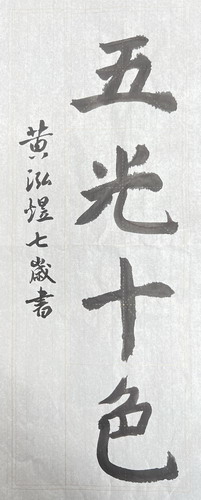 五光十色
黄泓煜七歲書